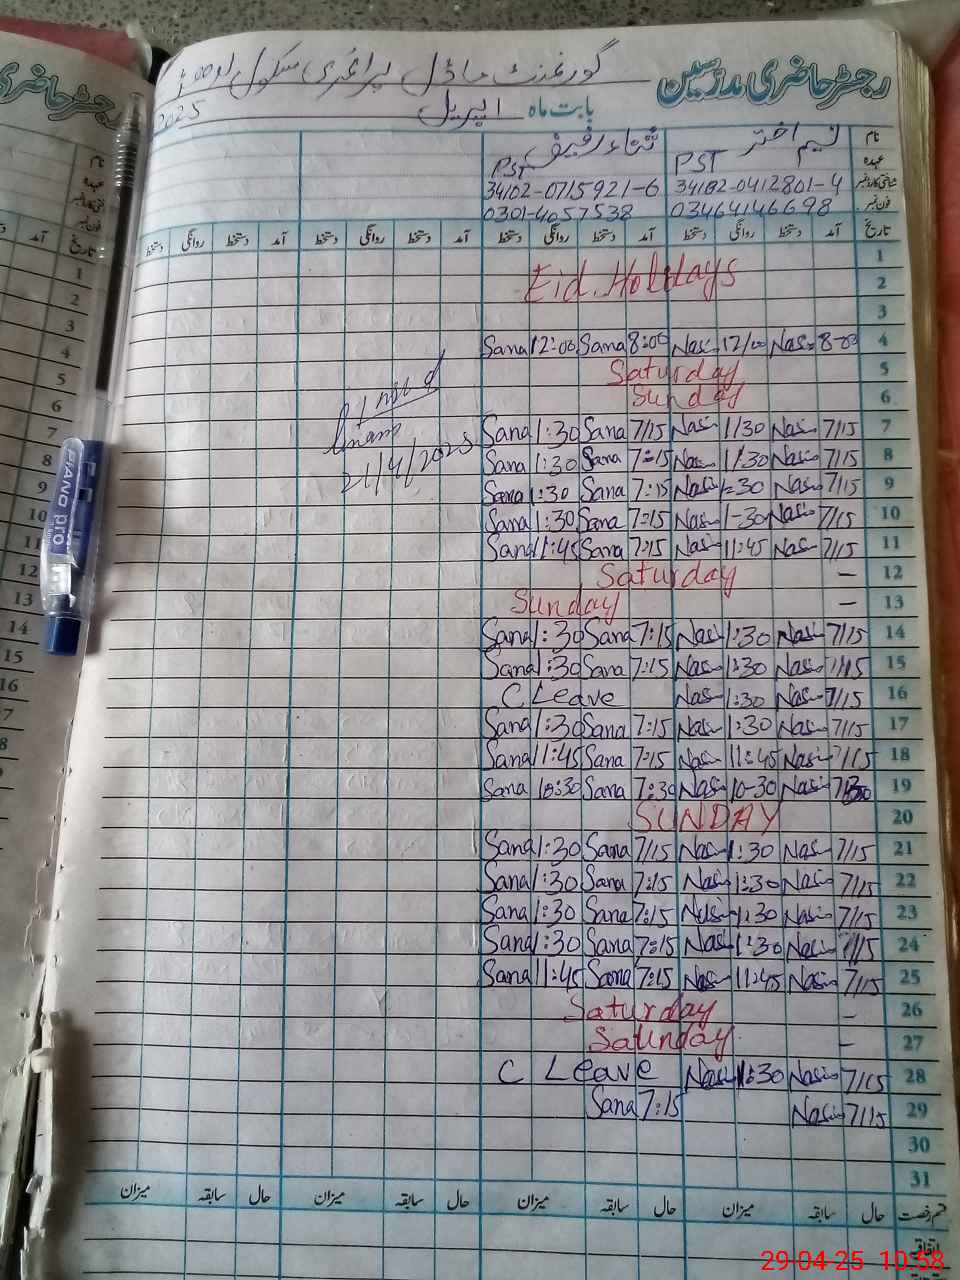 رجسٹر حاضری مدرسین گورنمنٹ ماڈل پرائمری سکول
بابت ماہ اپریل 2025
نام نسیم اختر ثناء رفیق
عہدہ PST PST
شناختی کارڈ نمبر 34102-0412801-4 34102-0715921-6
فون نمبر 03464146698 0301-4057538
تاریخ آمد دستخط روانگی دستخط آمد دستخط روانگی دستخط آمد دستخط روانگی دستخط آمد دستخط روانگی دستخط
1
Eid. Holidays 2
3
Sana 12:00 Sana 8:00 Nasi 12/00 Nasi 8-00 4
Saturday 5
Sunday 6
Sana 1:30 Sana 7/15 Nasi 1/30 Nasi 7/15 7
Sana 1:30 Sana 7:15 Nasi 1/30 Nasi 7/15 8
Sana 1:30 Sana 7:15 Nasi 1:30 Nasi 7/15 9
Sana 1:30 Sana 7:15 Nasi 1-30 Nasi 7/15 10
Sana 11:45 Sana 7:15 Nasi 11:45 Nasi 7/15 11
Saturday – 12
Sunday – 13
Sana 1:30 Sana 7:15 Nasi 1:30 Nasi 7/15 14
Sana 1:30 Sana 7:15 Nasi 1:30 Nasi 7/15 15
C Leave Nasi 1:30 Nasi 7/15 16
Sana 1:30 Sana 7:15 Nasi 1:30 Nasi 7/15 17
Sana 11:45 Sana 7:15 Nasi 11:45 Nasi 7/15 18
Sana 10:30 Sana 7:30 Nasi 10-30 Nasi 7/30 19
SUNDAY 20
Sana 1:30 Sana 7/15 Nasi 1:30 Nasi 7/15 21
Sana 1:30 Sana 7:15 Nasi 1:30 Nasi 7/15 22
Sana 1:30 Sana 7:15 Nasi 1:30 Nasi 7/15 23
Sana 1:30 Sana 7:15 Nasi 1:30 Nasi 7/15 24
Sana 11:45 Sana 7:15 Nasi 11:45 Nasi 7/15 25
Saturday – 26
Saunday – 27
C Leave Nasi 1:30 Nasi 7/15 28
Sana 7:15 Nasi 7/15 29
30
31
قسم رخصت حال سابقہ میزان حال سابقہ میزان حال سابقہ میزان حال سابقہ میزان
اتفاقیہ
21/4/2025
PIANO pro
رجسٹر حاضری
نام
عہدہ
فون نمبر
تاریخ آمد
1
2
3
4
5
6
7
8
9
10
11
12
13
14
15
16
29-04-25 10:58